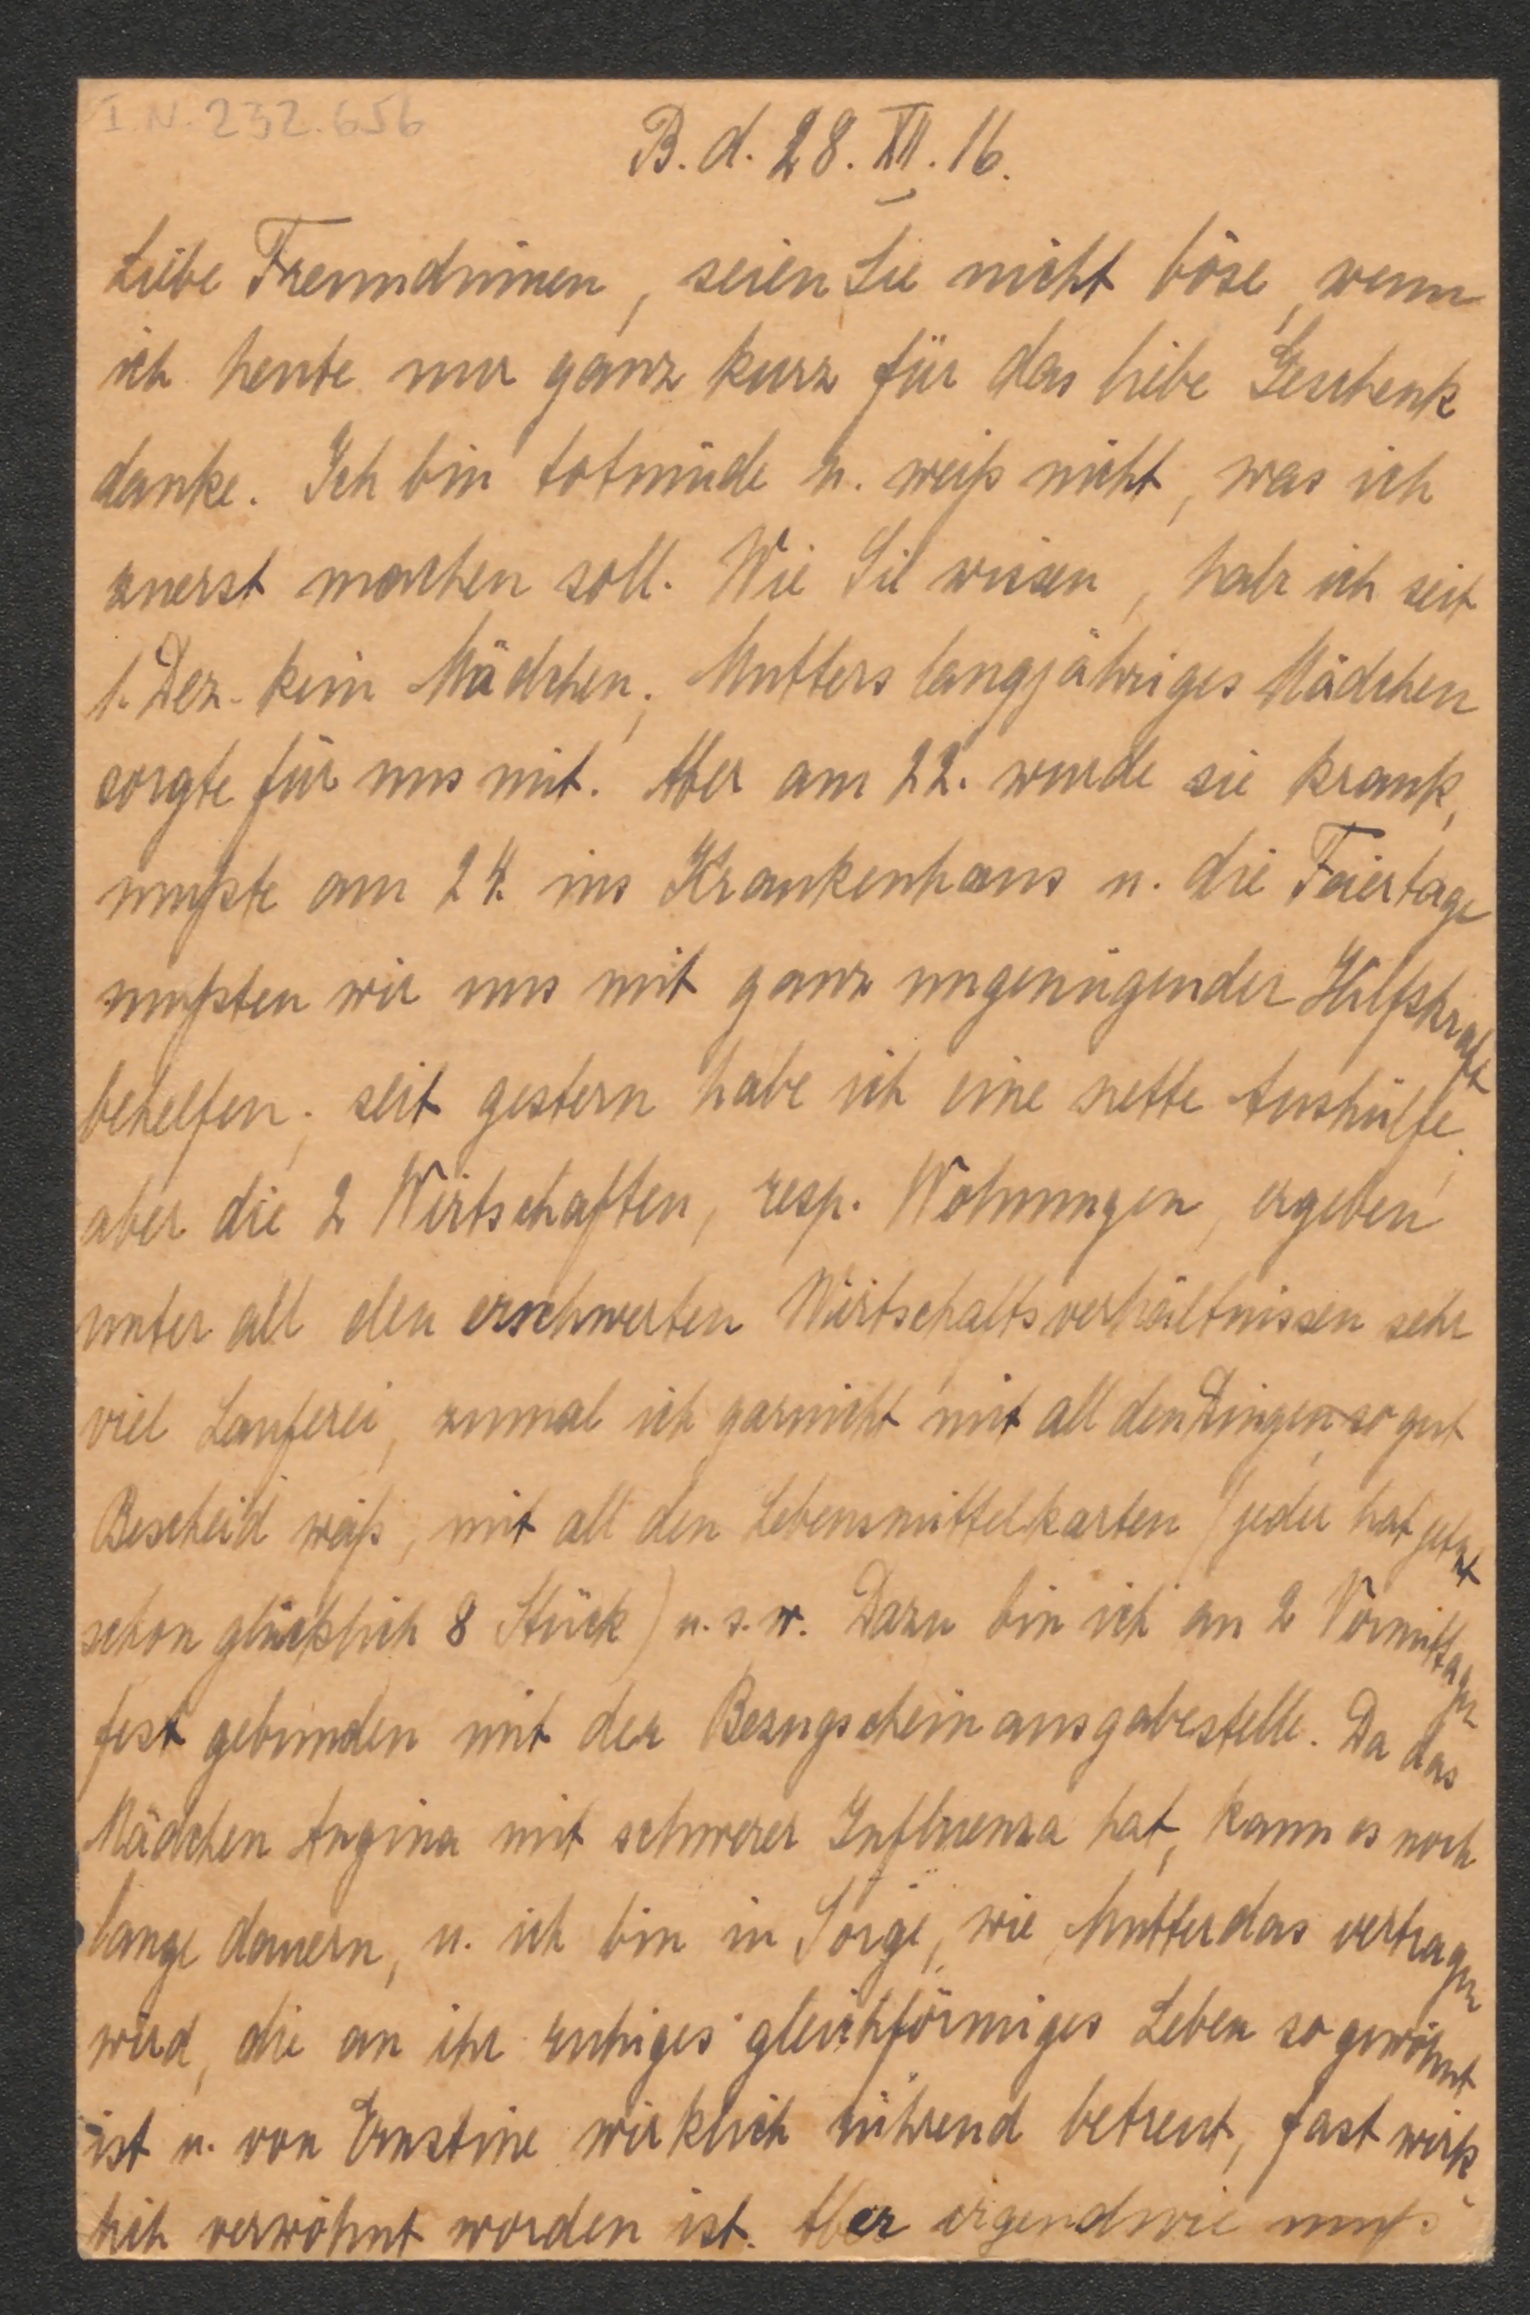 I.N. 232.656
B. d. 28. XII. 16.
Liebe Freundinnen, seien Sie nicht böse, wenn
ich heute nur ganz kurz für das liebe Geschenk
danke. Ich bin totmüde u. weiß nicht, was ich
zuerst machen soll. Wie Sie wissen, habe ich seit
1. Dez. kein Mädchen; Mutters langjähriges Mädchen
sorgte für uns mit. Aber am 22. wurde sie krank,
mußte am 24. ins Krankenhaus u. die Feiertage
mußten wir uns mit ganz ungenügender Hilfskraft
behelfen; seit gestern habe ich eine nette Aushülfe,
aber die 2 Wirtschaften, resp. Wohnungen, ergeben
unter all den erschwerten Wirtschaftsverhältnissen sehr
viel Lauferei, zumal ich garnicht mit all den Dingen so gut
Bescheid weiß, mit all den Lebensmittelkarten (jeder hat jetzt
schon glücklich 8 Stück) u. s. w. Dazu bin ich an 2 Vormittagen
fest gebunden mit der Bezugscheinausgabestelle. Da das
Mädchen Angina mit schwerer Influenza hat, kann es noch
lange dauern, u. ich bin in Sorge, wie Mutter das vertragen
wird, die an ihr ruhiges gleichförmiges Leben so gewöhnt
ist u. von Ernstine wirklich rührend betreut, fast wirk-
lich verwöhnt worden ist. Aber irgendwie muß